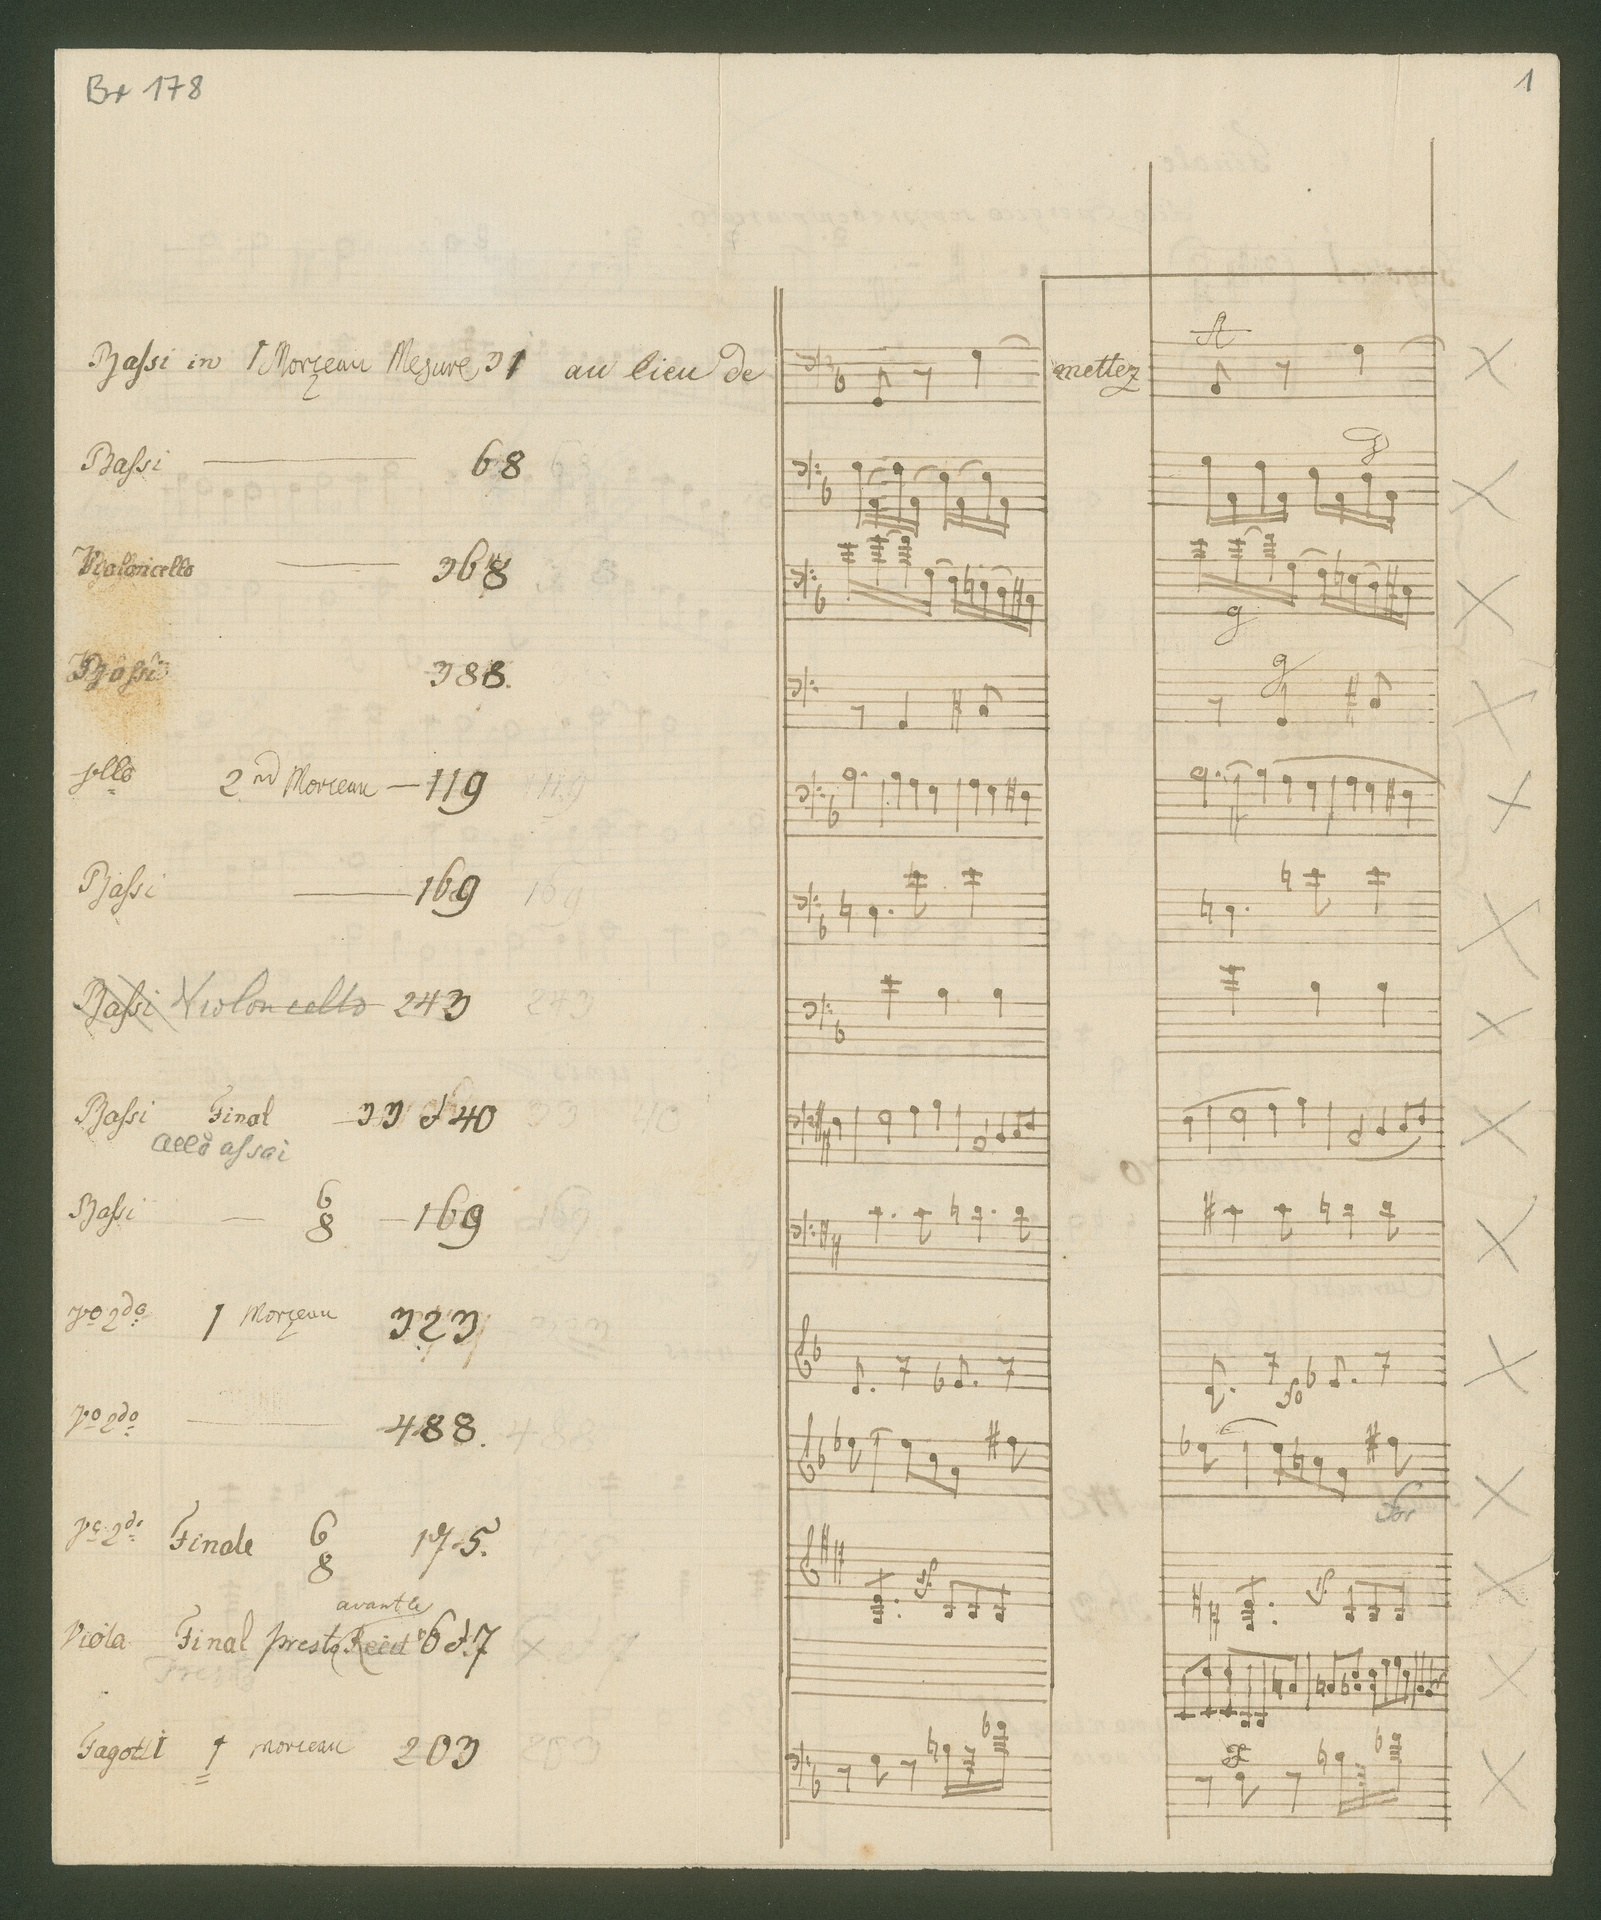 Br 178
1
Bassi in 1 Morceau Mesure 31 au lieu de mettez
A
Bassi 68
Violoncello 368
g
Bassi 388.
g
Vllo 2nd Morceau 119
Bassi 169
Bassi Violoncello 243
Bassi Final 33 et 40
allo assai
Bassi 6/8 169
Vo 2do 1 Morceau 323
Vo 2do 488.
Vo 2do Finale 6/8 175.
avant le
Viola Final presto Recit 6 et 7
Fagotti 1 morceau 203